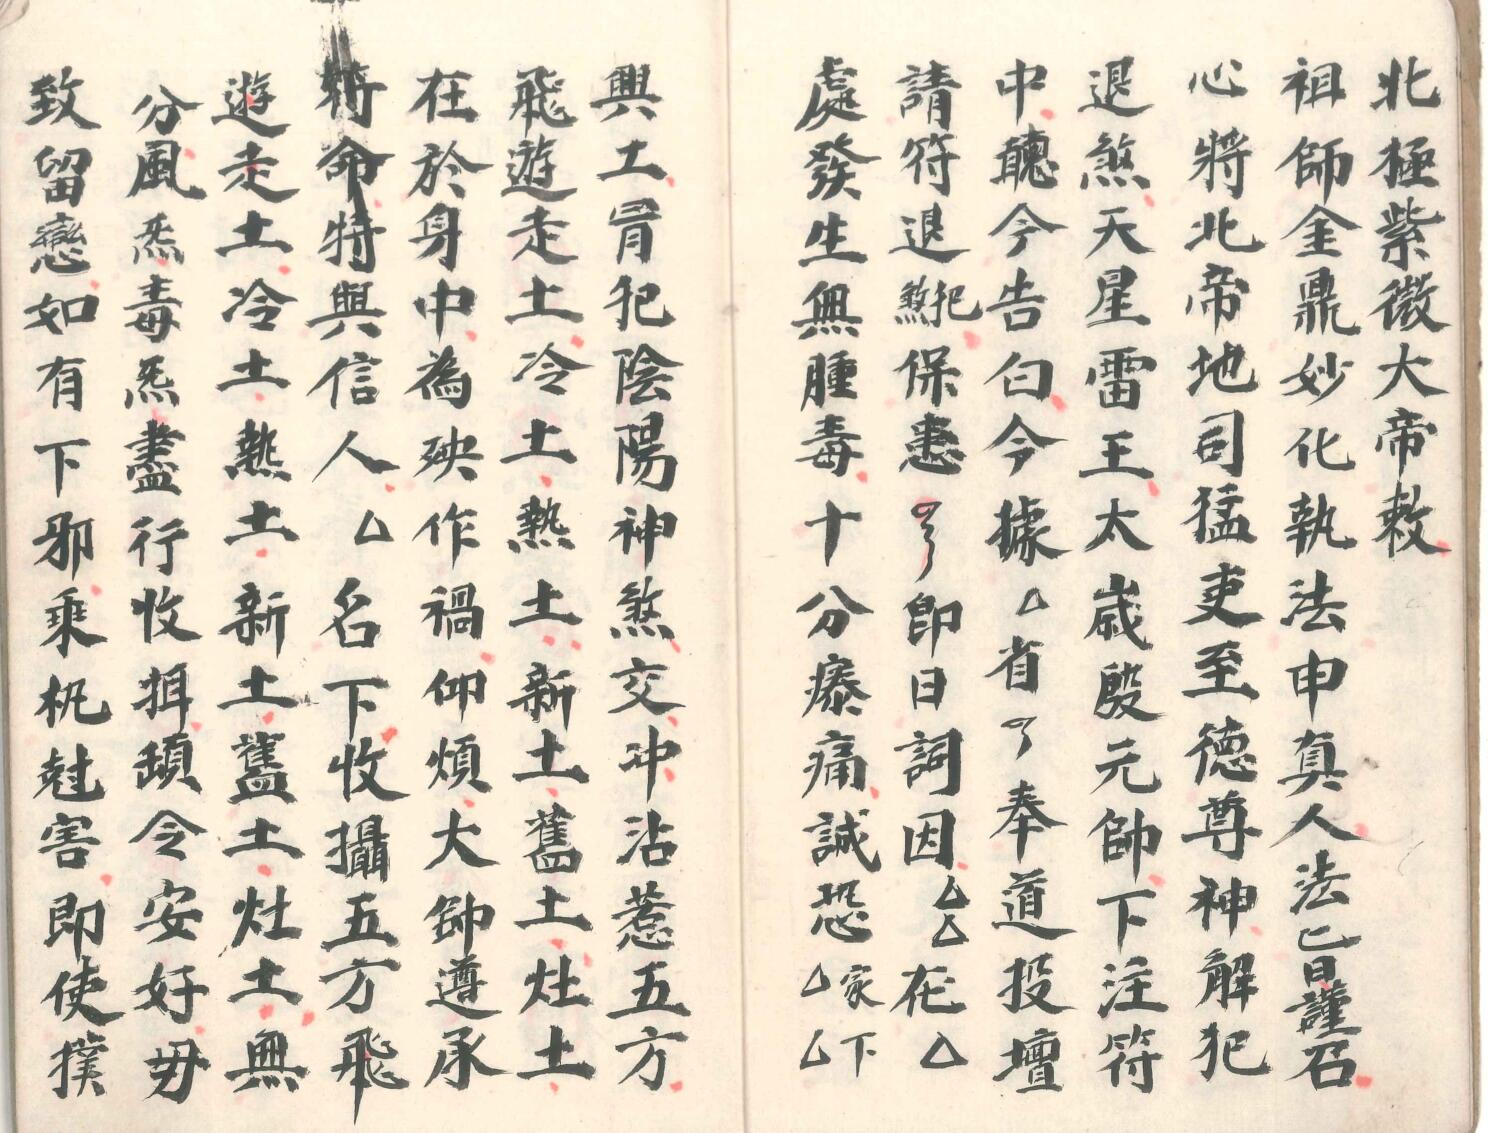 北極紫微大帝敕
祖師金鼎妙化執法申真人法旨謹召
心將北帝地司猛吏至德尊神解犯
退煞天星雷王太歲殷元帥下注符
中聽今告白今據厶省奉道投壇
請符退煞把保患即日詞因厶厶在厶
處發生無腫毒十分瘵痛誠恐厶家厶下
興工冐犯陰陽神煞交冲沾惹五方
飛遊走土冷土熱土新土舊土灶土
在於身中為殃作禍仰煩大帥遵承
符命特與信人厶名下收攝五方飛
遊走土冷土熱土新土舊土灶土無
分風炁毒炁盡行收令安好毋
致留戀如有下邪乘尅害即使撲